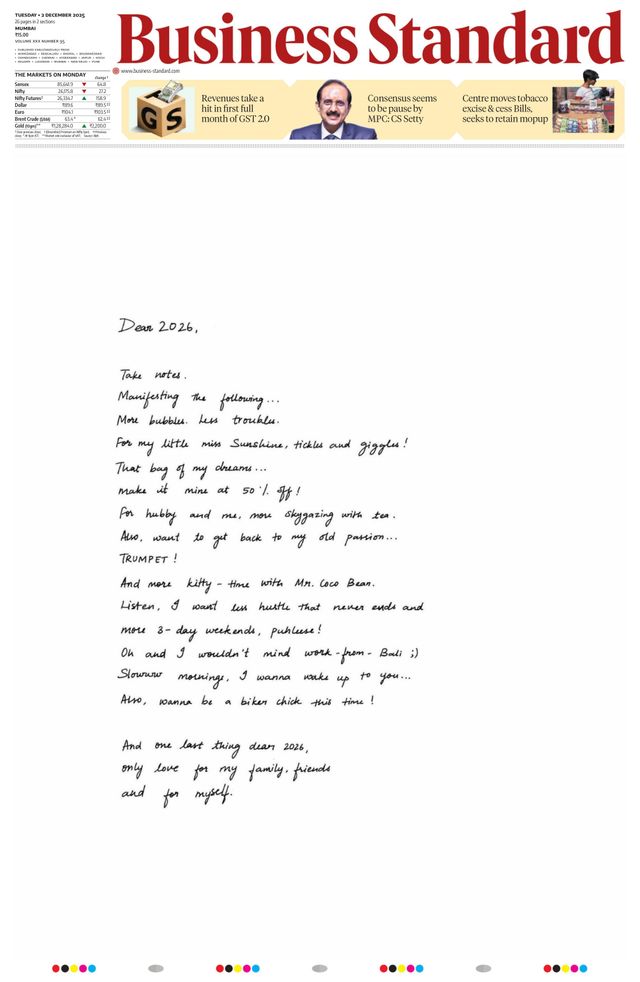 TUESDAY • 2 DECEMBER 2025
26 pages in 2 sections
MUMBAI
₹15.00
VOLUME XXX NUMBER 95
Business Standard
www.business-standard.com
THE MARKETS ON MONDAY
Sensex 85,641.9 64.8
Nifty 26,175.8 27.2
Nifty Futures 26,334.7 158.9
Dollar ₹89.6
Euro ₹104.1
Brent Crude ($/bbl) 63.4
Gold (10gm) ₹1,28,284.0 ₹2,200.0
GS
Revenues take a
hit in first full
month of GST 2.0
Consensus seems
to be pause by
MPC: CS Setty
Centre moves tobacco
excise & cess Bills,
seeks to retain mopup
Dear 2026,
Take notes.
Manifesting the following...
More bubbles. Less troubles.
For my little miss Sunshine, tickles and giggles!
That bag of my dreams...
make it mine at 50% off!
For hubby and me, more skygazing with tea.
Also, want to get back to my old passion...
TRUMPET!
And more kitty-time with Mr. Coco Bean.
Listen, I want less hustle that never ends and
more 3-day weekends, puhleese!
Oh and I wouldn't mind work-from-Bali ;)
Slowuww mornings, I wanna wake up to you...
Also, wanna be a biker chick this time!
And one last thing dear 2026,
only love for my family, friends
and for myself.